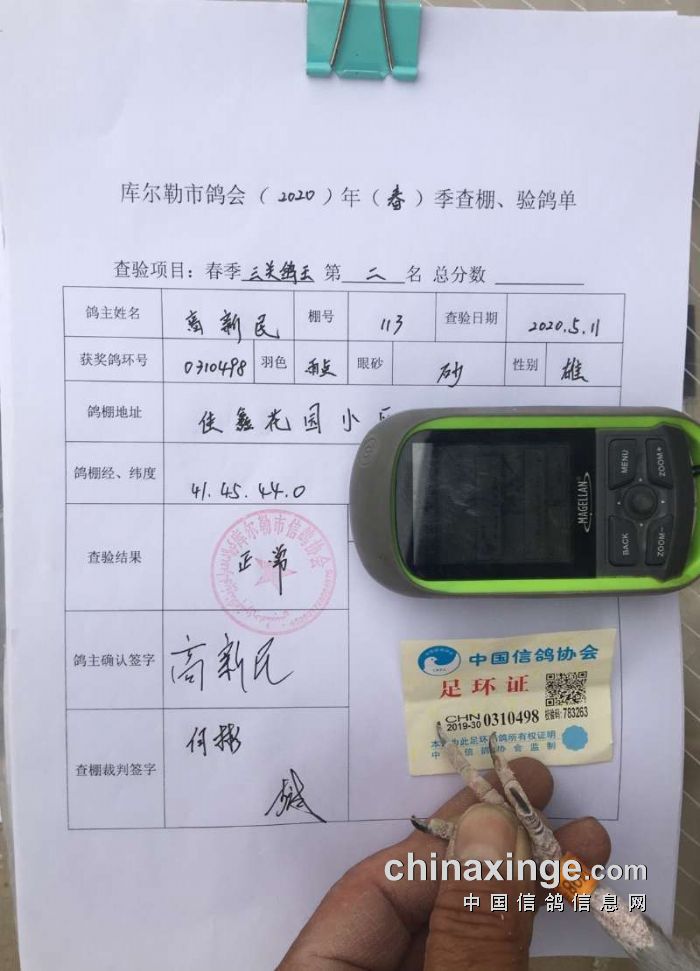 库尔勒市鸽会（2020）年（春）季查棚、验鸽单
查验项目：春季 三关鸽王 第 二 名 总分数
鸽主姓名 高新民 棚号 113 查验日期 2020.5.11
获奖鸽环号 0310498 羽色 雨点 眼砂 砂 性别 雄
鸽棚地址 佳鑫花园小区
鸽棚经、纬度 41.45.44.0
查验结果 正常
库尔勒市信鸽协会
鸽主确认签字 高新民
查棚裁判签字 何彬
MENU
ZOOM+
BACK
ZOOM-
MAGELLAN
中国信鸽协会
足环证
CHN
2019-30 0310498 校验码: 783263
本证为此足环信鸽所有权证明
中国信鸽协会监制
chinaxinge.com
中国信鸽信息网